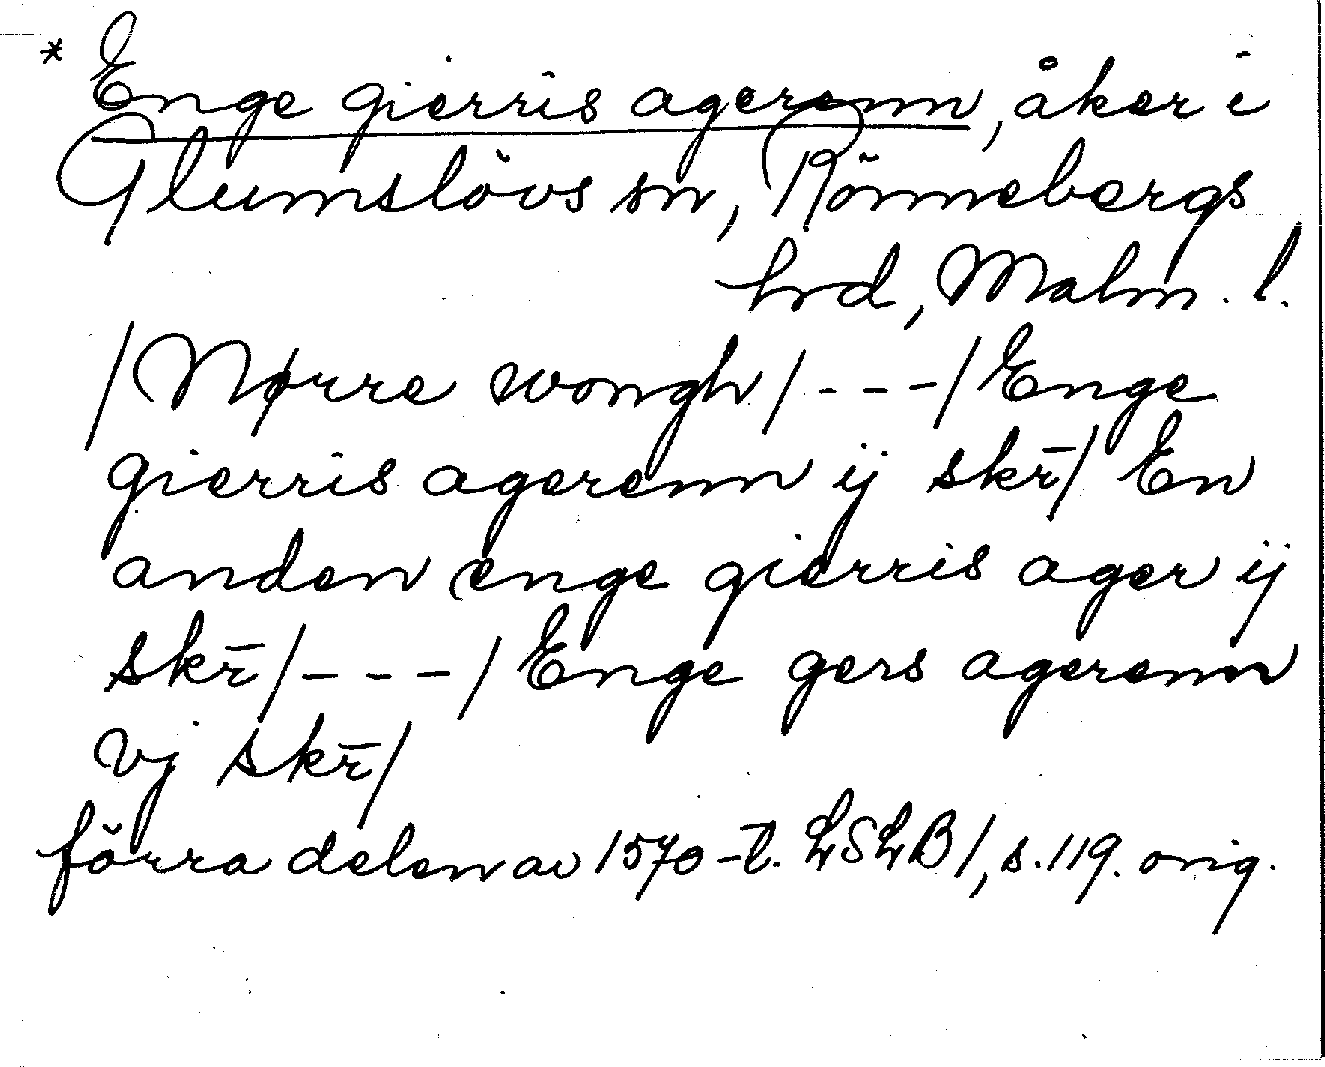 * Enge gierris agerenn, åker i
Glumslövs sn, Rönnebergs
hrd, Malm. l.
/Nørre wongh/---/Enge
gierris agerenn ij skr̄/ En
anden enge gierris ager ij
skr̄/---/Enge gers agerenn
vj skr̄/
förra delen av 1570-t. LSLB/, s. 119. orig.